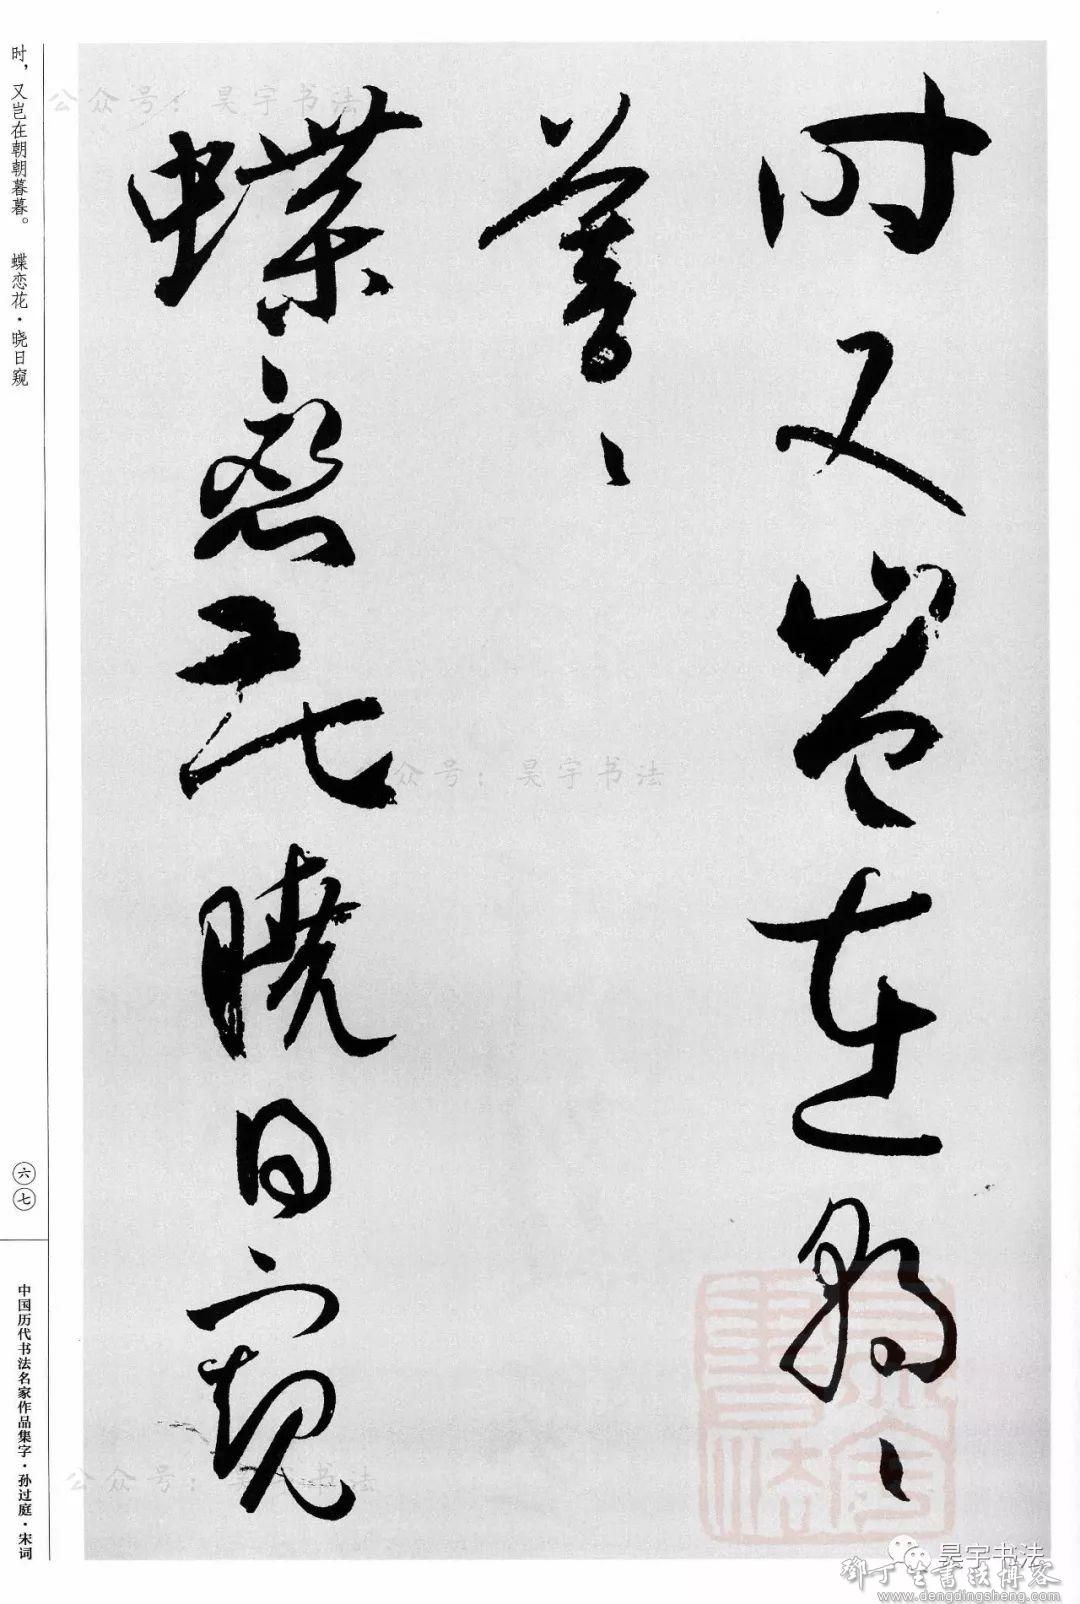 时又岂在朝〻
暮〻
蝶恋花晓日窥
时，又岂在朝朝暮暮。 蝶恋花·晓日窥
六七
中国历代书法名家作品集字·孙过庭·宋词
公众号：昊宇书法
公众号：昊宇书法
公众号：昊宇书法
昊宇书法
昊宇书法
邓丁生书法博客
www.dengdingsheng.com